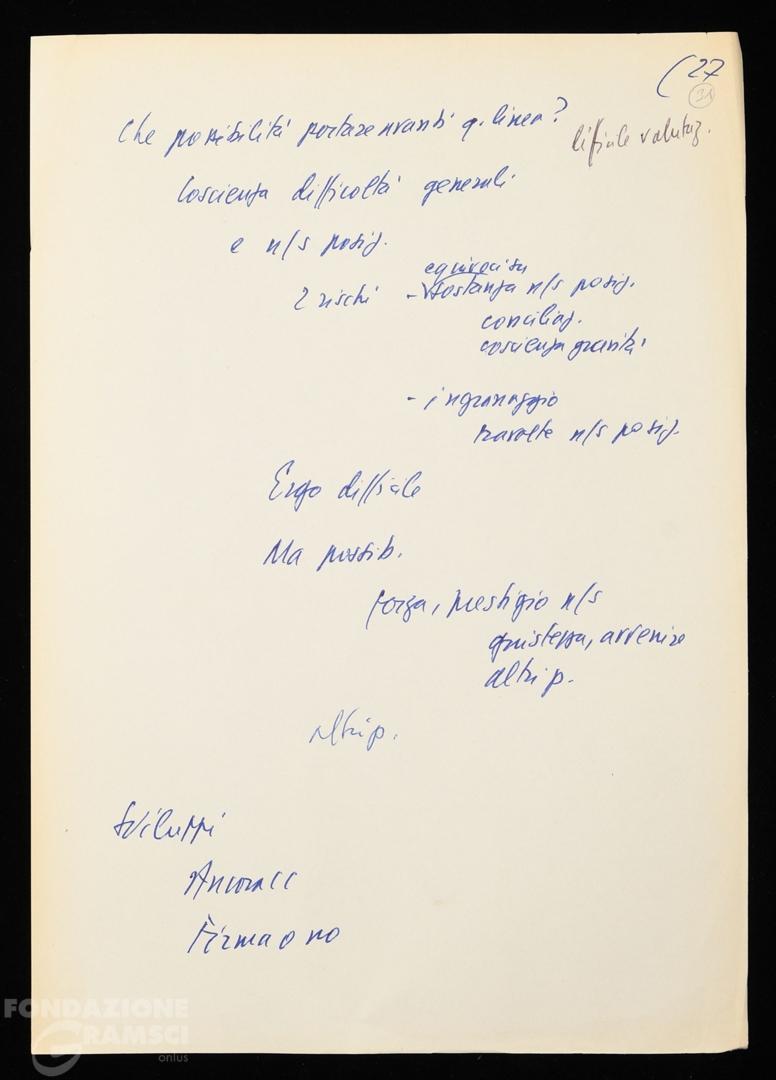 (27
31
Che possibilità portare avanti q. linea?
difficile valutaz.
Coscienza difficoltà generali
e n/s posiz.
2 rischi
equivoci su
- sostanza n/s posiz.
conciliaz.
coscienza gravità
- ingranaggio
travolte n/s posiz.
Ergo difficile
Ma possib.
forza, prestigio n/s
giustezza, avvenire
altri p.
altri p.
Sviluppi
Ancora CC
Firma o no
FONDAZIONE
GRAMSCI
onlus